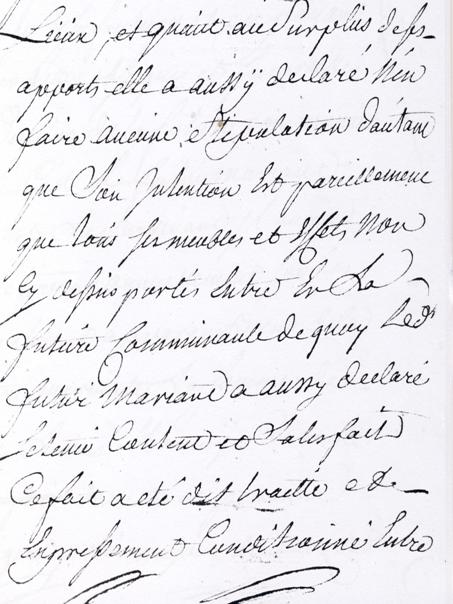 Lieux, et quant au Surplus dess-
apports elle a aussÿ declaré N'en
faire aucune Stipulation d'autant
que Son Intention Est pareillement
que tous ses meubles et Effets Non
Cy dessus portés Entre En La
future Communauté de quoy Led.
futur Mariant a aussy declaré
Se tenir Content et Satisfait
Ce fait a eté dit traitté et
Expressement Conditionné Entre